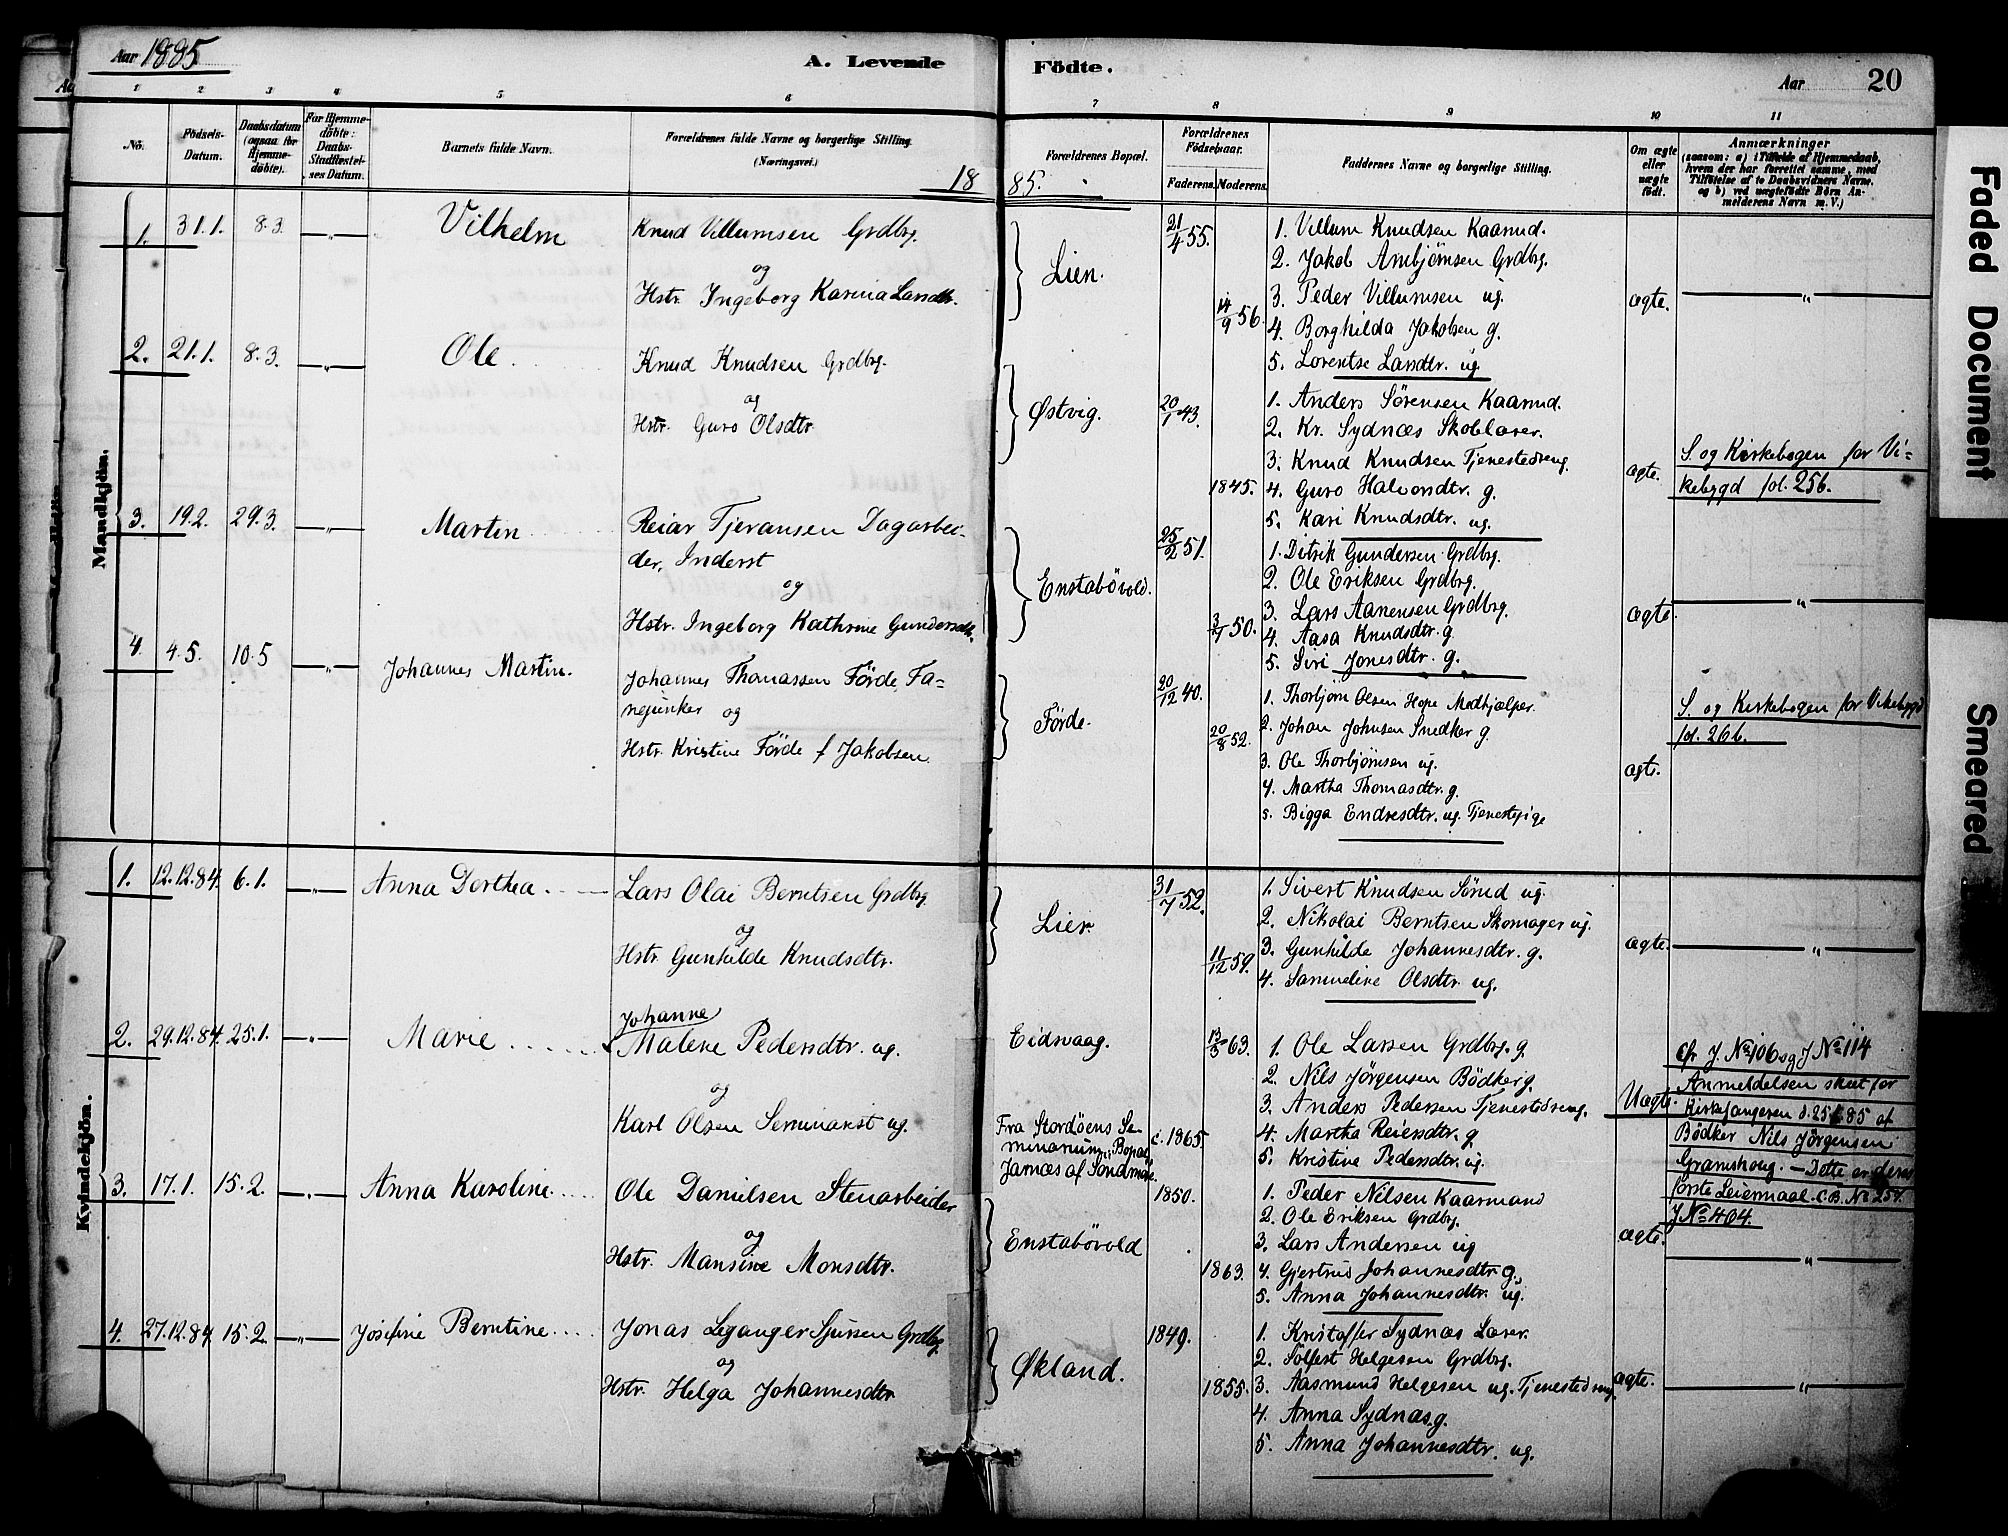 Aar 1885
A. Levende
Födte.
Aar
20
1 2 3 4 5 6 7 8 9 10 11
No.
Födsels-
Datum.
Daabsdatum
(ogsaa for
Hjemme-
døbte).
For Hjemme-
døbte:
Daabs-
Stadfæstel-
ses Datum.
Barnets fulde Navn.
Forældrenes fulde Navne og borgerlige Stilling.
(Næringsvei.)
Forældrenes Bopæl.
Forældrenes
Födselsaar.
Faderens. Moderens.
Faddernes Navne og borgerlige Stilling.
Om ægte
eller
uægte
født.
Anmærkninger
(saasom: a) i Tilfælde af Hjemmedaab,
hvem der har forrettet samme, med
Tilföielse af to Daabsvidners Navne,
og b) ved uægtefödte Börn An-
melderens Navn m. V.)
18 85.
Mandkjön.
1. 31.1. 8.3. — " — Vilhelm
Knud Villumsen Grdbrg.
og
Hstr. Ingeborg Karina Larsdtr.
Lien.
21/4 55.
14/9 56.
1. Villum Knudsen Kaarud.
2. Jakob Ambjørnsen Grdbrg.
3. Peder Villumsen ug.
4. Borghilda Jakobsen g.
5. Lorentse Larsdtr. ug.
ægte.
— " —
2. 21.1. 8.3. — " — Ole
Knud Knudsen Grdbrg.
og
Hstr. Guro Olsdtr.
Østvig.
20/1 43.
1845.
1. Anders Sörensen Kaarud.
2. Kr. Sydnæs Skolelærer.
3. Knud Knudsen Tjenestedreng.
4. Guro Halvordtr. g.
5. Kari Knudsdtr. ug.
ægte.
S. og Kirkebogen for Vi-
kebygd fol. 256.
3. 19.2. 29.3. — " — Martin
Reiar Tjeransen Dagarbei-
der, Inderst
og
Hstr. Ingeborg Kathrine Gundersdtr.
Enstabövold.
25/2 51.
3/7 50.
1. Ditrik Gundersen Grdbrg.
2. Ole Eriksen Grdbrg.
3. Lars Aanensen Grdbrg.
4. Aasa Knudsdtr. g.
5. Siri Jonesdtr. g.
ægte.
— " —
4. 4.5. 10.5 — " — Johannes Martin.
Johannes Thomassen Förde, Fa-
nejunker og
Hstr. Kristine Förde f Jakobsen.
Förde.
20/12 40.
20/8 52.
1. Thorbjörn Olsen Hope Medhjælper.
2. Johan Johnsen Snedker g.
3. Ole Thorbjörnsen ug.
4. Martha Thomasdtr. g.
5. Bigga Endresdtr. ug. Tjenestepige
ægte.
S. og Kirkebogen for Vikebygd
fol. 266.
Kvindekjön.
1. 12.12.84. 6.1. — " — Anna Dorthea
Lars Olai Berntsen Grdbrg
og
Hstr Gunhilde Knudsdtr.
Lien.
31/7 52.
11/12 59.
1. Sivert Knudsen Sörud ug.
2. Nikolai Berntsen Skomager ug.
3. Gunhilde Johannesdtr. g.
4. Samueline Olsdtr. ug.
ægte.
— " —
2. 29.12.84. 25.1. — " — Marie
Johanne
Malene Pedersdtr. ug.
og
Karl Olsen Seminarist ug.
Eidsvaag.
Fra Stordöens Se-
minarium, Bopæl
Jarnæs af Söndmøre.
c. 1865
13/3 63.
1. Ole Larsen Grdbrg. g.
2. Nils Jörgensen Bödker g.
3. Anders Pedersen Tjenestedreng.
4. Martha Reiersdtr. g.
5. Kristine Pedersdtr. ug.
Uægte.
cfr J. No 106 og J No 114
Anmeldelsen skeet for
Kirkesangeren d. 25/1 85 af
Bödker Nils Jörgensen
Gramshoug. — Dette er deres
förste Leiermaal. C.B. No 257.
J No 404.
3. 17.1. 15.2. — " — Anna Karoline
Ole Danielsen Stenarbeider
og
Hstr. Mansine Monsdtr.
Enstabövold
1850.
1863.
1. Peder Nilsen Kaarmand
2. Ole Eriksen Grdbrg.
3. Lars Andersen ug
4. Gjertrud Johannesdtr g.
5. Anna Johannesdtr. ug.
ægte.
— " —
4. 27.12.84 15.2. — " — Josefine Berntine
Jonas Leganger Sjursen Grdbrg
og
Hstr. Helga Johannesdtr
Økland.
1849.
1855.
1. Kristoffer Sydnæs Lærer.
2. Solfest Helgesen Grdbrg.
3. Aasmund Helgesen ug. Tjenestedreng.
4. Anna Sydnæs g.
5. Anna Johannesdtr. ug.
ægte.
— " —
Faded Document
Smeared